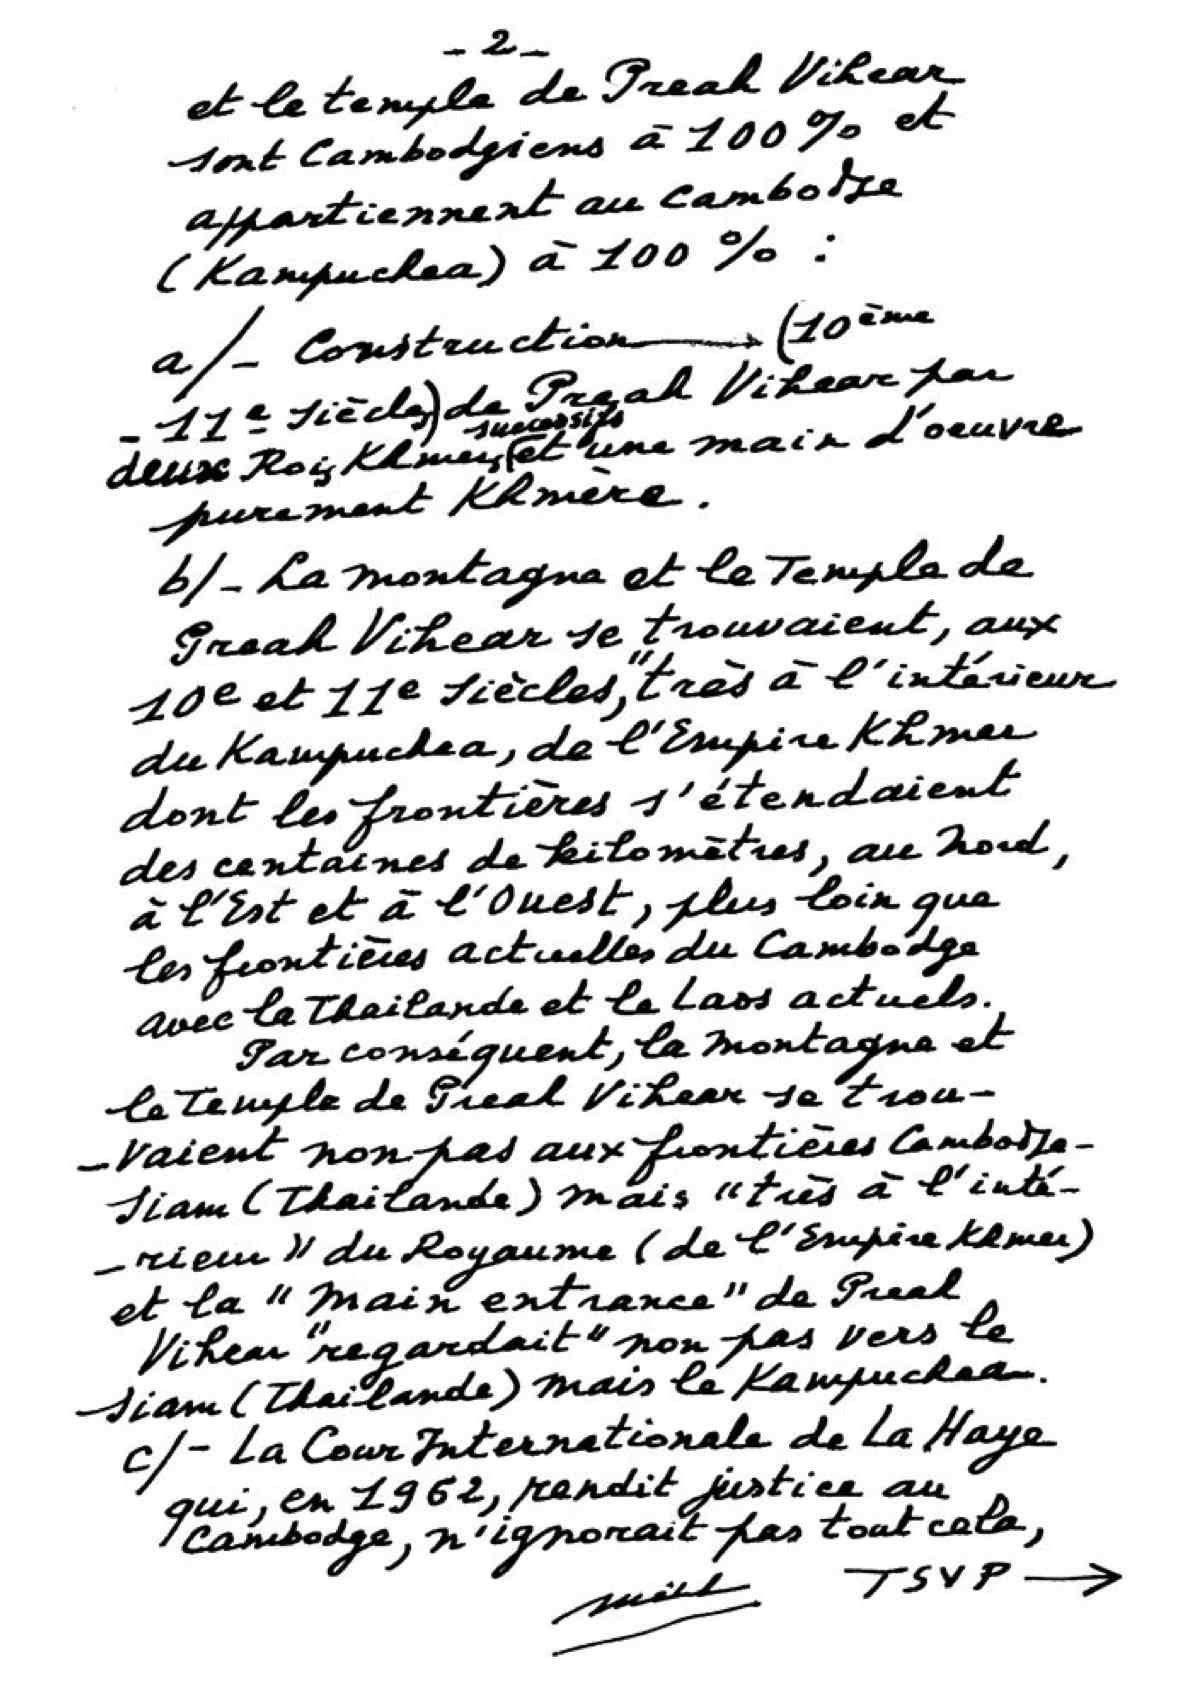 - 2 -
et le temple de Preah Vihear
sont Cambodgiens à 100 % et
appartiennent au Cambodge
(Kampuchea) à 100 % :
a/- Construction → (10ème
- 11e siècles) de Preah Vihear par
successifs
deux Rois Khmers et une main d'oeuvre
purement Khmère.
b/- La montagne et le Temple de
Preah Vihear se trouvaient, aux
10e et 11e siècles, "très à l'intérieur
du Kampuchea, de l'Empire Khmer
dont les frontières s'étendaient
des centaines de kilomètres, au Nord,
à l'Est et à l'Ouest, plus loin que
les frontières actuelles du Cambodge
avec la Thaïlande et le Laos actuels.
Par conséquent, la montagne et
le Temple de Preah Vihear se trou-
-vaient non pas aux frontières Cambodge-
Siam (Thaïlande) mais "très à l'inté-
-rieur" du Royaume (de l'Empire Khmer)
et la "Main entrance" de Preah
Vihear "regardait" non pas vers le
Siam (Thaïlande) mais le Kampuchea.
c/- La Cour Internationale de La Haye
qui, en 1962, rendit justice au
Cambodge, n'ignorait pas tout cela,
TSVP →